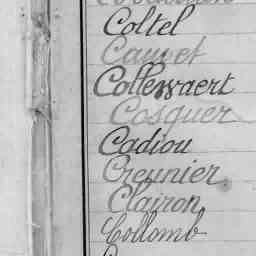 Coltel
Cauvet
Collewaert
Cosquer
Cadiou
Creunier
Clairon
Collomb